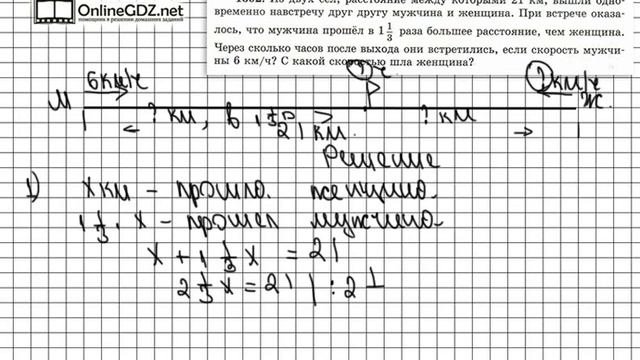 OnlineGDZ.net
расстояние между которыми 21 км, вышли одно-
временно навстречу друг другу мужчина и женщина. При встрече оказа-
лось, что мужчина прошёл в 1 1/3 раза большее расстояние, чем женщина.
Через сколько часов после выхода они встретились, если скорость мужчи-
ны 6 км/ч? С какой скоростью шла женщина?
6 км/ч ? ч ? км/ч
М Ж
? км, в 1 1/3 р > ? км
21 км
Решение
1) х км – прошла женщина.
1 1/3 · х – прошел мужчина.
х + 1 1/3 х = 21
2 1/3 х = 21 | : 2 1